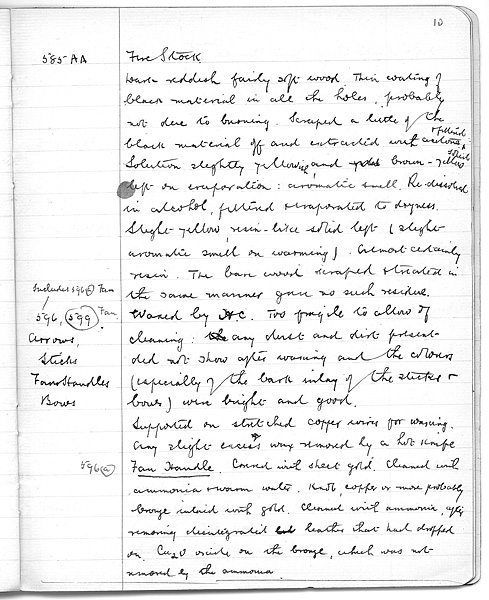 10
585 AA
Fire Stock
Dark reddish fairly soft wood. Thin coating of
black material in all the holes, probably
not due to burning. Scraped a little of the
black material off and extracted with acetone
& filtered
Solution slightly yellowish, and brown-yellow
solid
left on evaporation: aromatic smell. Re-dissolved
in alcohol, filtered & evaporated to dryness.
Slight yellow, resin-like solid left (slight
aromatic smell on warming). Almost certainly
resin. The bare wood scraped & treated in
the same manner gave no such residue.
Includes 596(a) Fan
596, 599 Fan
Arrows,
Sticks
Fan Handles
Bows
Waxed by H.C. Too fragile to allow of
cleaning: any dust and dirt present
did not show after waxing and the colours
(especially of the bark inlay of the sticks &
bows) were bright and good.
Supported on stretched copper wires for waxing.
Any slight excess of wax removed by a hot knife
596(a)
Fan Handle. Covered with sheet gold. Cleaned with
ammonia & warm water. Knob, copper or more probably
bronze inlaid with gold. Cleaned with ammonia, after
removing disintegrated leather that had dropped
on. Cu2O oxide on the bronze, which was not
removed by the ammonia.